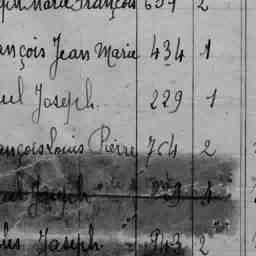 Marie François 2
ançois Jean Marie 434 1
uel Joseph 229 1
ançois Louis Pierre 764 2
Joseph 1
les Joseph 943 2